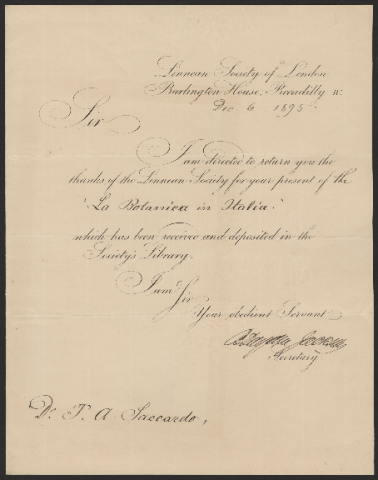 Linnean Society of London
Burlington House, Piccadilly W.
Dec 6 1895
Sir
I am directed to return you the
thanks of the Linnean Society for your present of the
"La Botanica in Italia."
which has been received and deposited in the
Society's Library.
I am Sir
Your obedient Servant
Secretary
Dr. P. A. Saccardo,